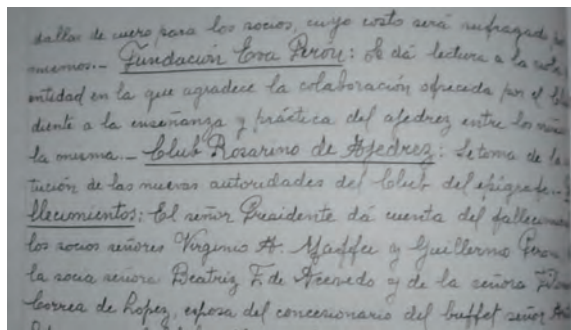 dallas de cuero para los socios, cuyo costo será sufragado
mismos.- Fundación Eva Perón: Se dá lectura a la
entidad en la que agradece la colaboración ofrecida por el
diente a la enseñanza y práctica del ajedrez entre los
la misma.- Club Rosarino de Ajedrez: Se toma de
tución de las nuevas autoridades del Club del epígrafe.-
llecimientos: El señor Presidente dá cuenta del
los socios señores Virginio A. y Guillermo
la socia señora Beatriz F. de Acevedo y de la señora
Correa de Lopez, esposa del concesionario del buffet señor